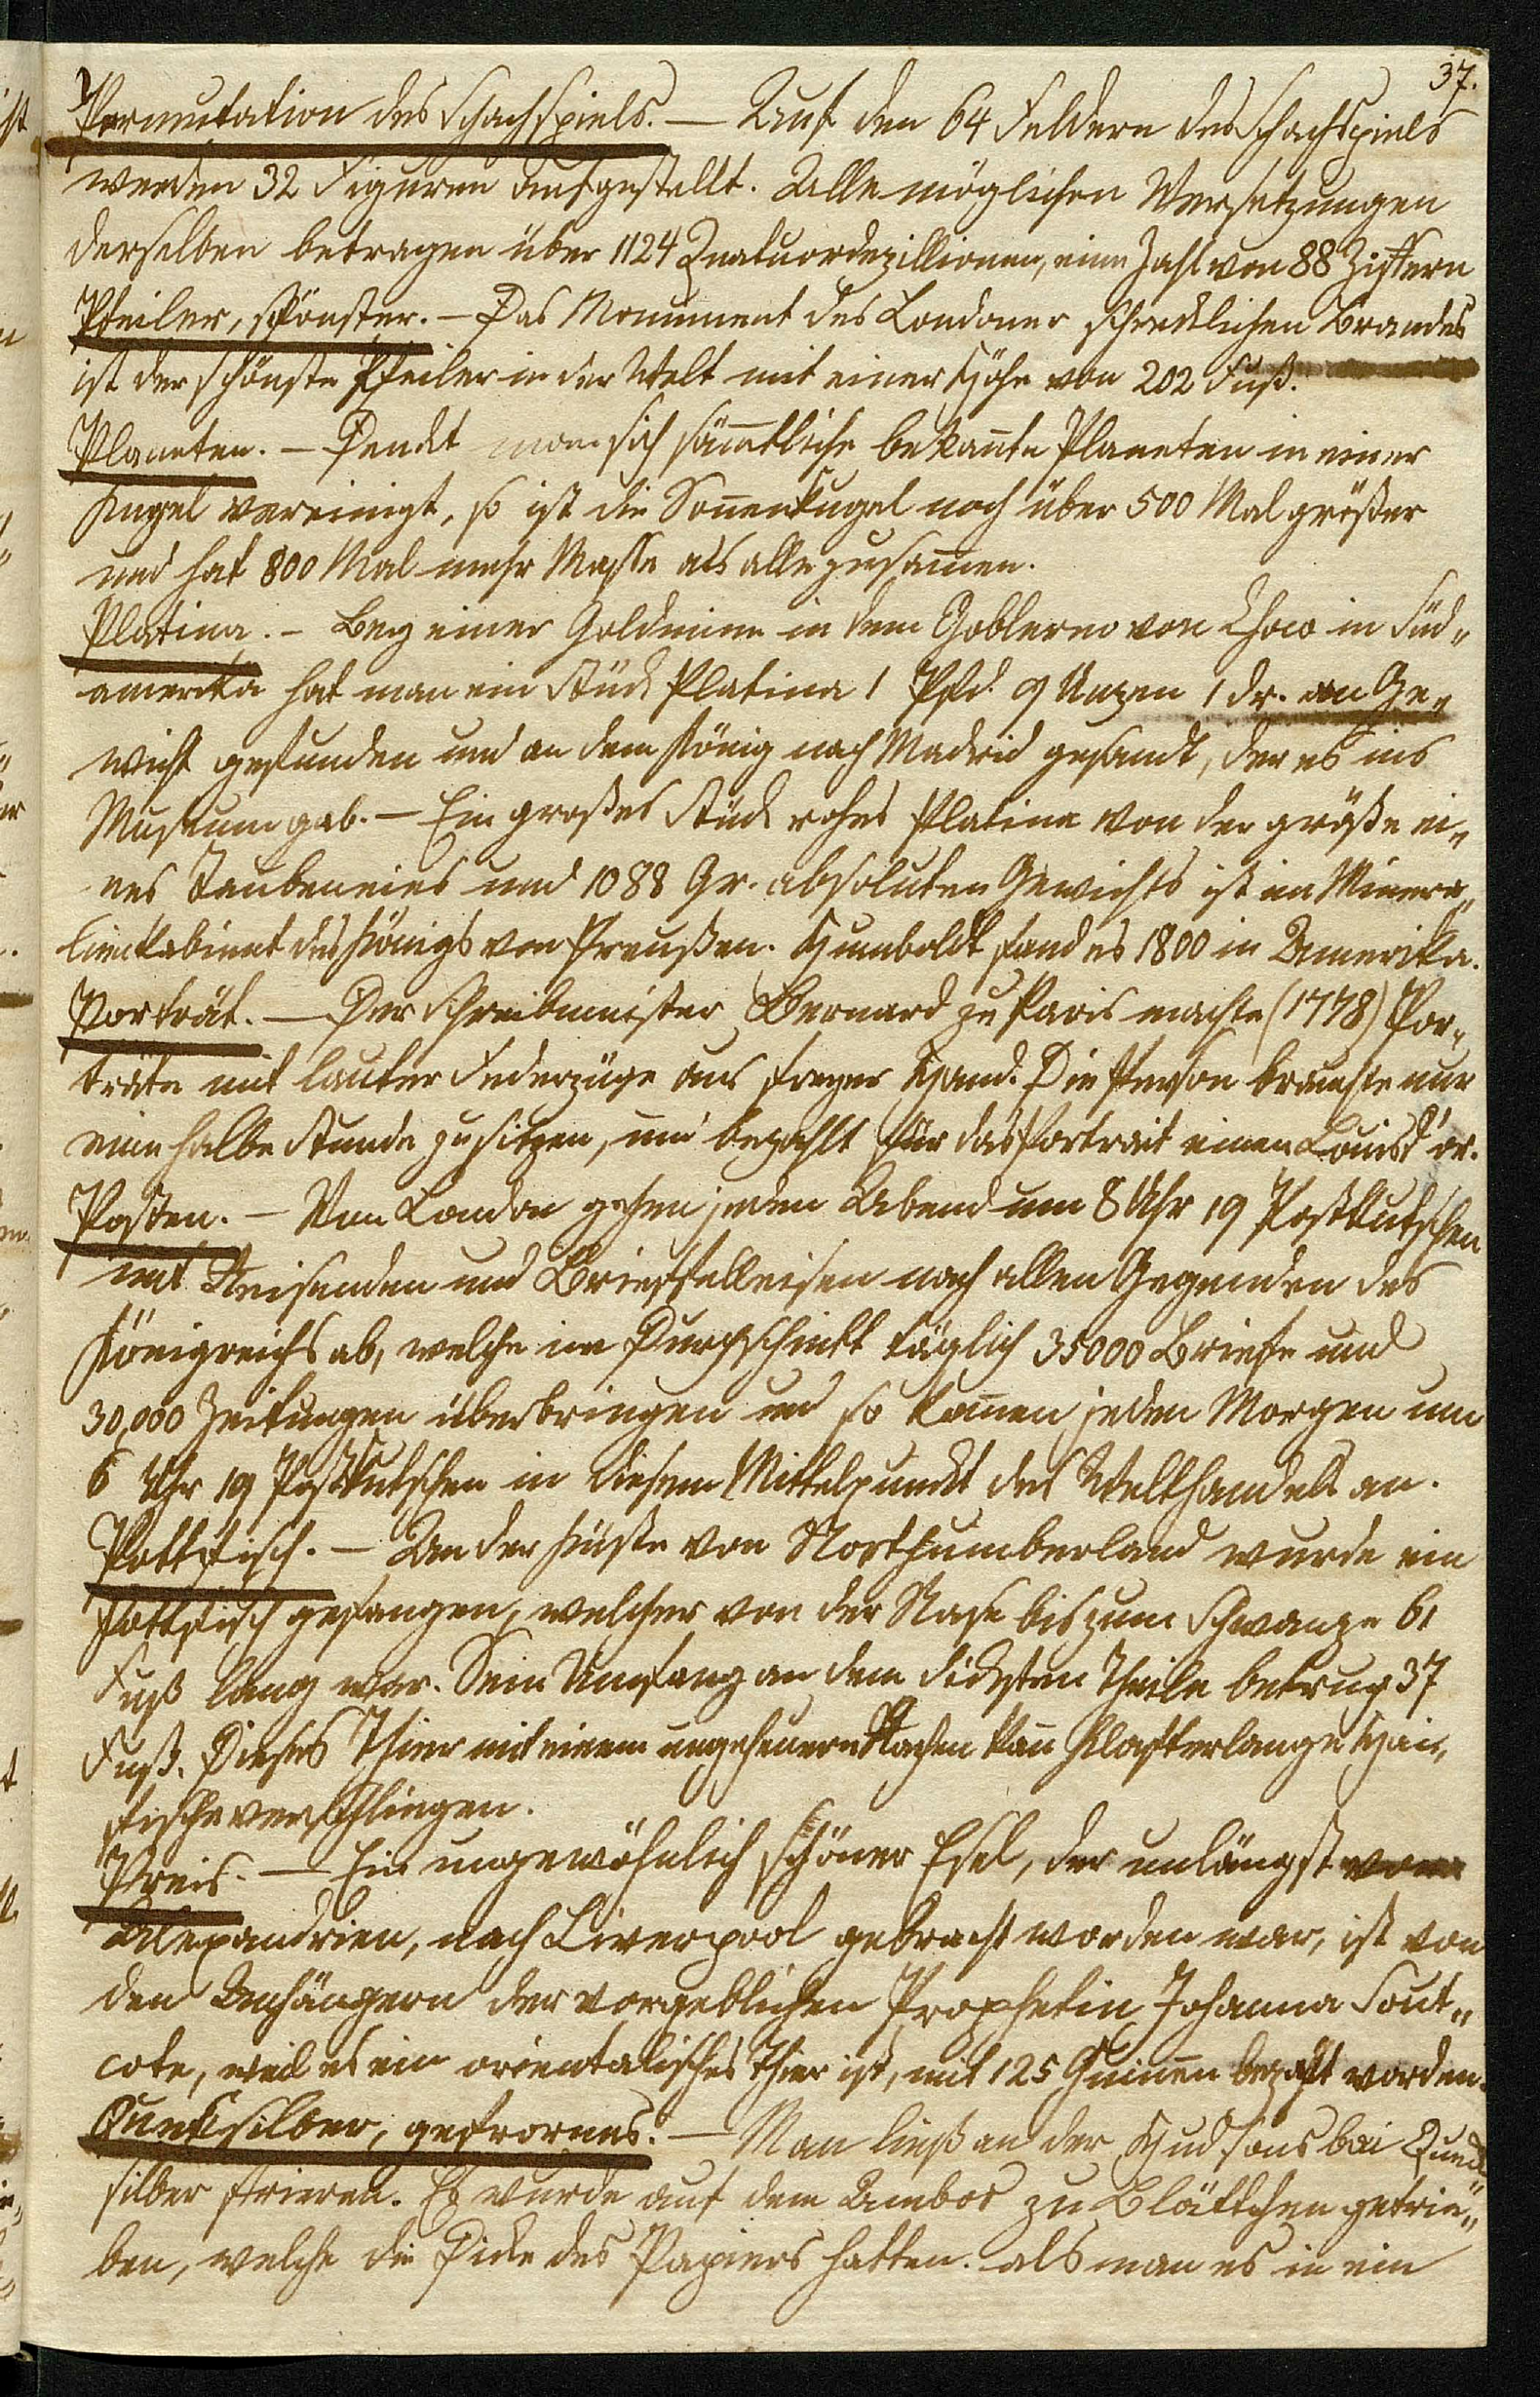 37.
Permutation des Schachspiels. — Auf den 64 Feldern des Schachspiels
werden 32 Figuren aufgestellt. Alle möglichen Versetzungen
derselben betragen über 1124 Quatuordezillionen, eine Zahl von 88 Ziffern
Pfeiler, schönster. — Das Monument des Londoner schrecklichen Brandes
ist der schönste Pfeiler in der Welt mit einer Höhe von 202 Fuß.
Planeten. — Denckt man sich sämtliche bekannte Planeten in einer
Kugel vereinigt, so ist die Sonnenkugel noch über 500 Mal größer
und hat 800 Mal mehr Masse als alle zusammen.
Platina. — Bey einer Goldmine in dem Goblerno von Choco in Süd„
amerika hat man ein Stück Platina 1 Pfd. 9 Unzen 1 dr. an Ge„
wicht gefunden und an dem König nach Madrid gesandt, der es ins
Museum gab. — Ein großes Stück rohes Platina von der größe ei„
nes Taubeneies und 1088 Gr. absoluten Gewichts ist im Minera„
lienkabinet des Königs von Preußen. Humboldt fand es 1800 in Amerika.
Porträt. — Der Schreibmeister Bernard zu Paris machte (1778) Por„
träte mit lauter Federzüge aus freyer Hand. Die Person brauchte nur
eine halbe Stunde zu sitzen, und bezahlt für das Portrait einen Louisd'or.
Posten. — Von London gehen jeden Abend um 8 Uhr 19 Postkutschen
mit Reisenden und Brieffelleisen nach allen Gegenden des
Königreichs ab, welche im Durchschnitt täglich 35000 Briefe und
30,000 Zeitungen überbringen und so kommen jeden Morgen um
6 Uhr 19 Postkutschen in diesem Mittelpunckt des Welthandels an.
Pottfisch. — An der Küste von Northumberland wurde ein
Pottfisch gefangen, welcher von der Nase bis zum Schwanze 61
Fuß lang war. Sein Umfang an dem dicksten Theile betrug 37
Fuß. Dieses Thier mit einem ungeheuern Rachen kann Klafterlange Hai„
fische verschlingen.
Preis. — Ein ungewöhnlich schöner Esel, der unlängst von
Alexandrien, nach Liverpool gebracht worden war, ist von
den Anhängern der vorgeblichen Prophetin Johanna Sout„
cote, weil es ein orientalisches Thier ist, mit 125 Guineen bezahlt worden.
Quecksilber, gefrornes. — Man ließ an der Hudsons bai Queck
silber frieren. Es wurde auf dem Ambos zu Blättchen getrie„
ben, welche die Dicke des Papiers hatten. als man es in ein